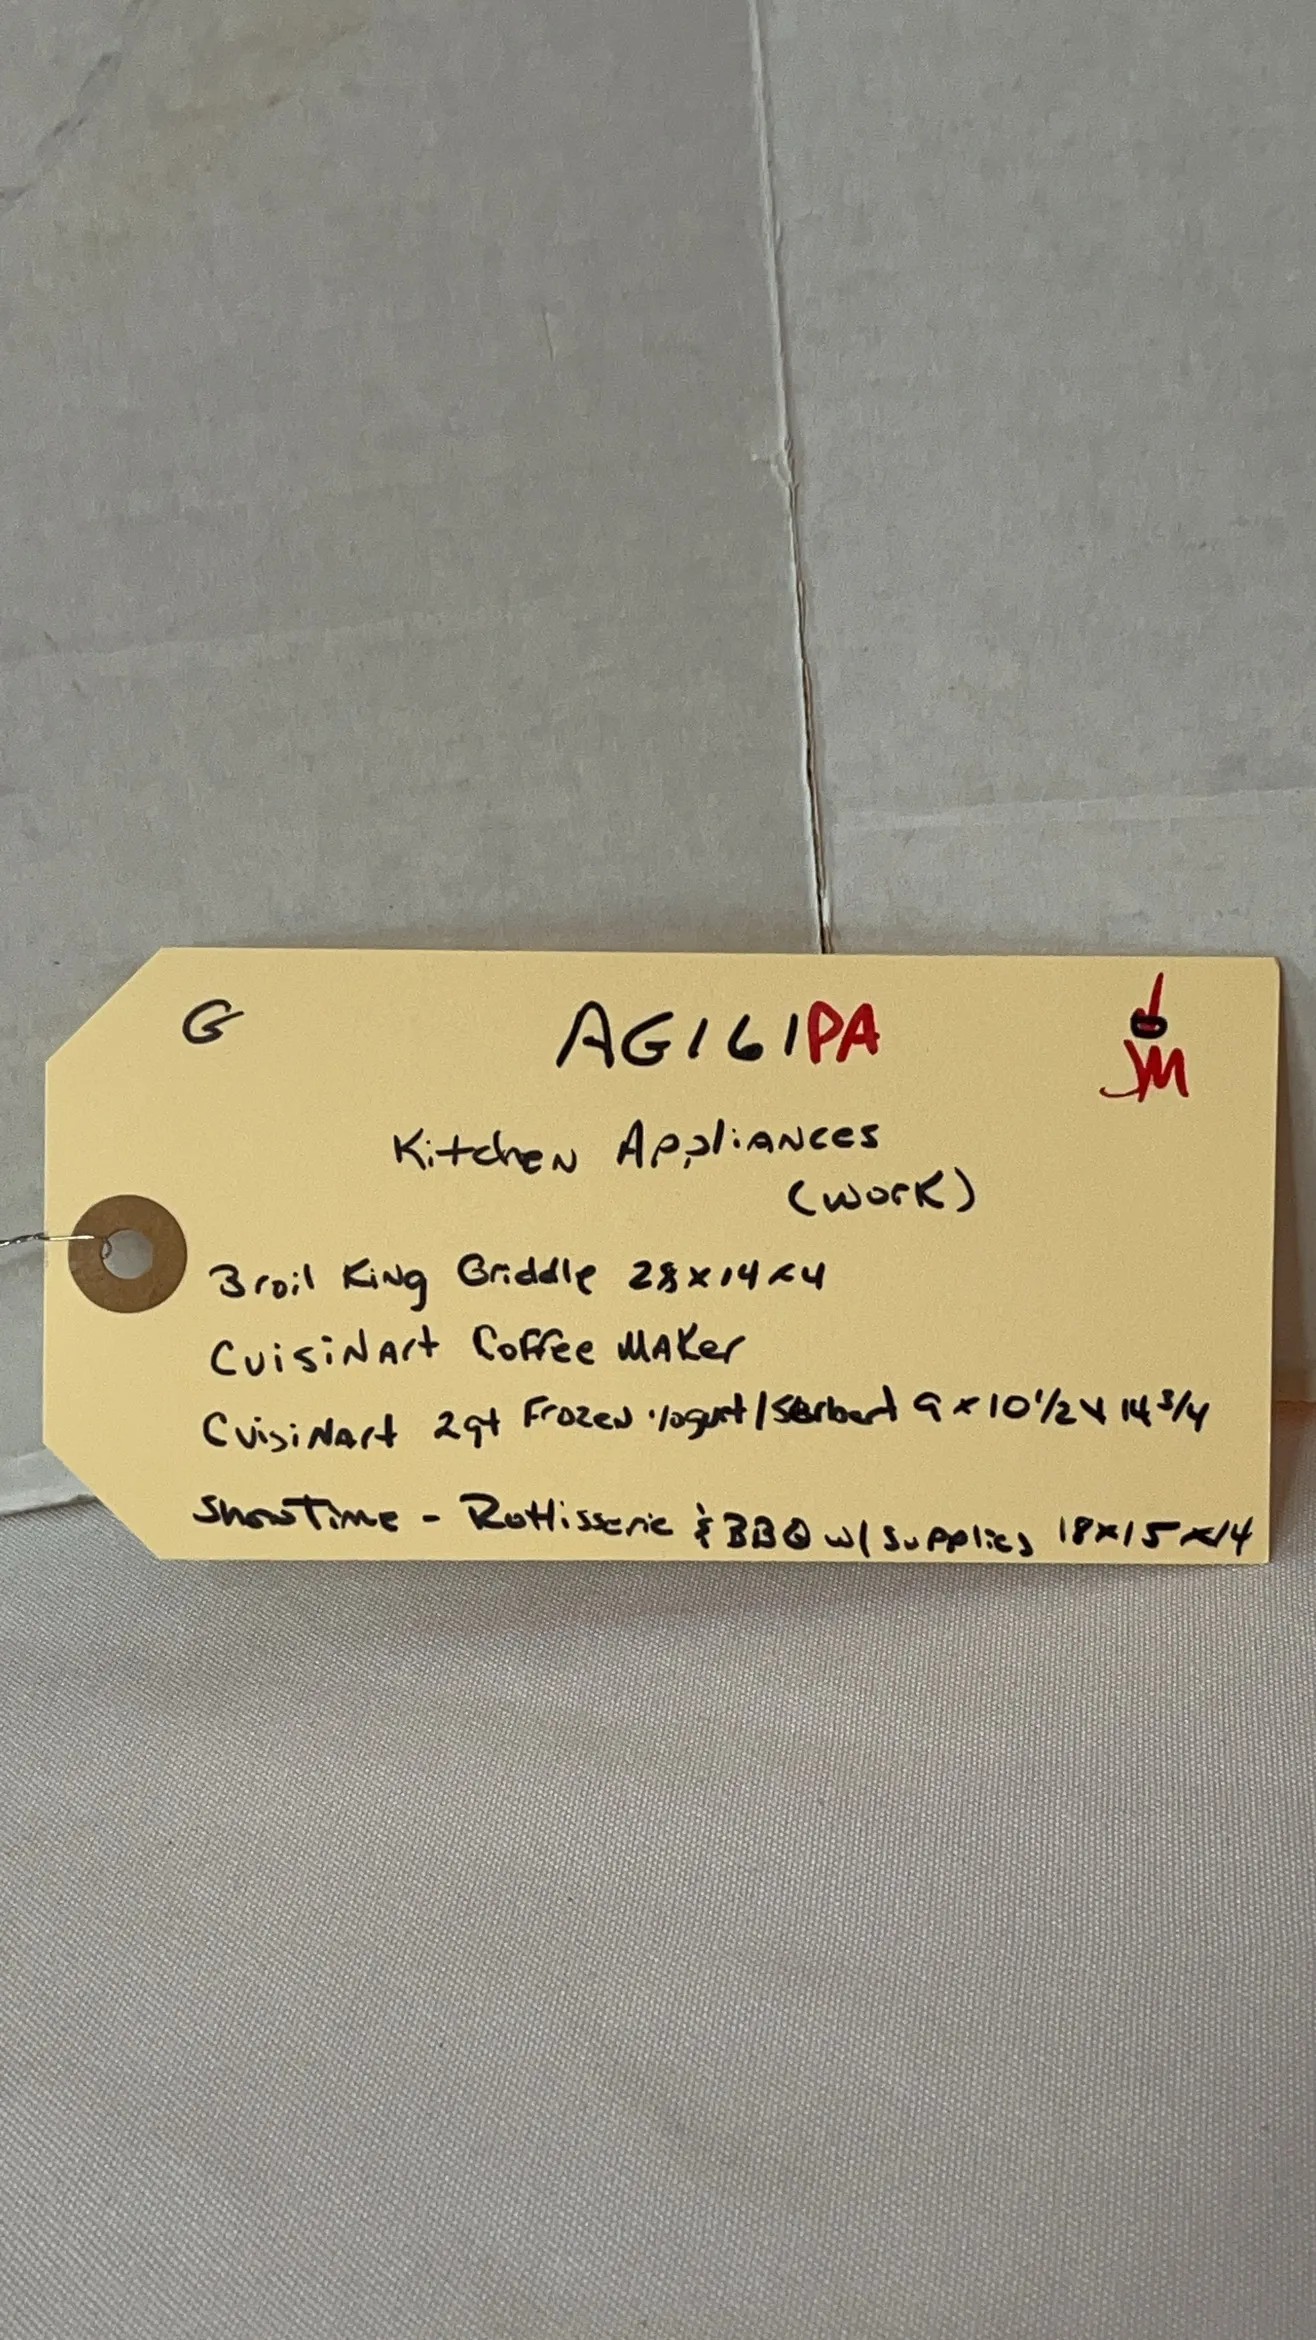 G AG161PA JM
Kitchen Appliances
(work)
Broil King Griddle 28x14x4
Cuisinart Coffee Maker
Cuisinart 2qt Frozen Yogurt/Sorbert 9x10 1/2 x 14 3/4
ShowTime - Rottisserie & BBQ w/ supplies 18x15x14